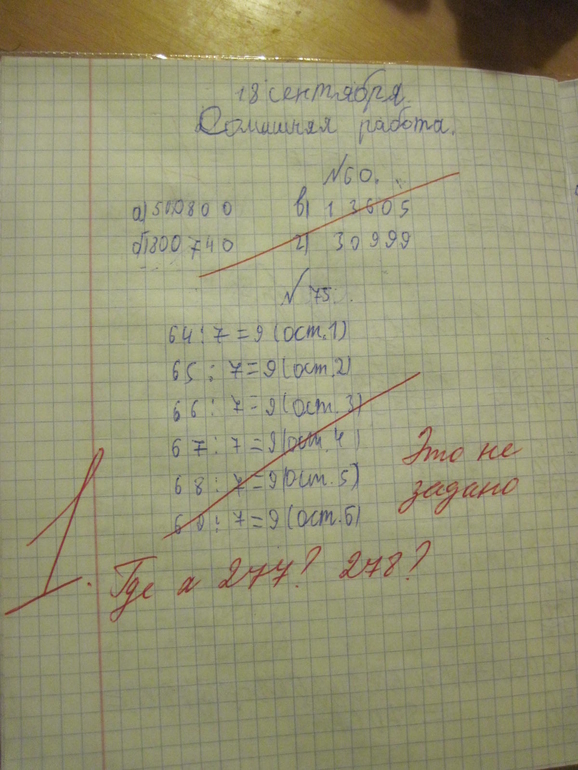 18 сентября.
Домашняя работа.
№60.
а) 500800 в) 13605
б) 800740 г) 30999
№75.
64 : 7 = 9 (ост. 1)
65 : 7 = 9 (ост. 2)
66 : 7 = 9 (ост. 3)
67 : 7 = 9 (ост. 4)
68 : 7 = 9 (ост. 5)
69 : 7 = 9 (ост. 6)
Это не
задано
1.
Где 277? 278?